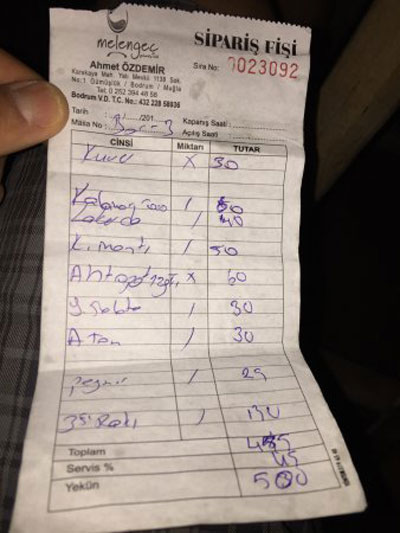 melengeç
SİPARİŞ FİŞİ
Ahmet ÖZDEMİR
Sıra No: 0023092
Karakaya Mah. Yalı Mevkii 1138 Sok.
No:1 Gümüşlük / Bodrum / Muğla
Tel: 0 252 394 48 58
Bodrum V.D. T.C. No.: 432 228 58936
Tarih : / /201 Kapanış Saati :
Masa No : Açılış Saati :
CİNSİ Miktarı TUTAR
Kuver x 30
Kalamar 1 50
Lakerda 1 40
K. mantı 1 50
Ahtapot x 60
Y. Salata 1 30
A Tom 1 30
peynir 1 25
35 Rakı 1 130
Toplam
Servis % 45
Yekün 500